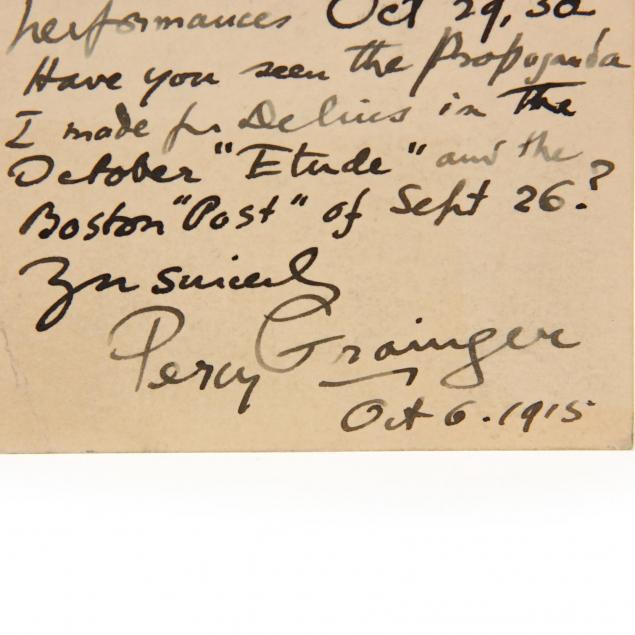 performances Oct 29, 30
Have you seen the Propoganda
I made for Delius in the
October "Etude" and the
Boston "Post" of Sept 26.?
Yrs sincerely
Percy Grainger
Oct 6. 1915